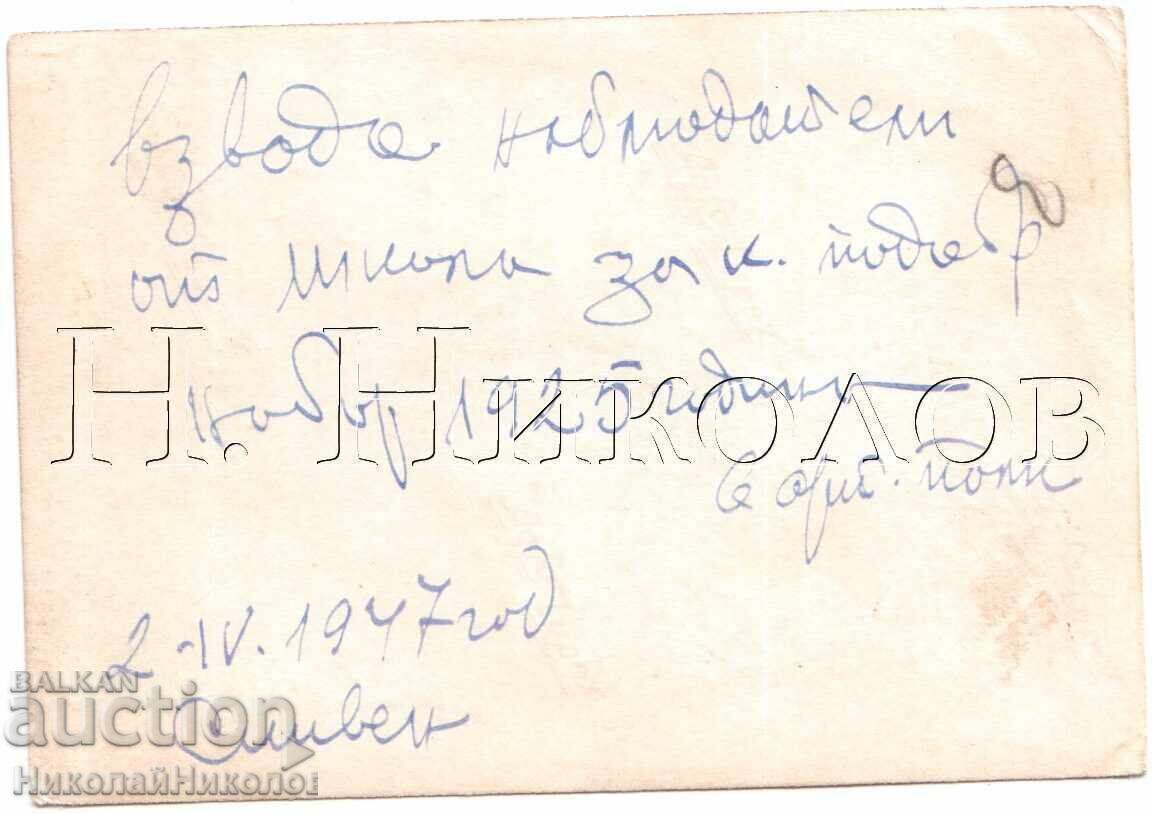 взвода наблюдатели
от школа за к. подофр
набор 1925 година
6 арт. полк
2-IV. 1947 год
Сливен
Н. Николов
BALKAN
auction
НиколайНиколов